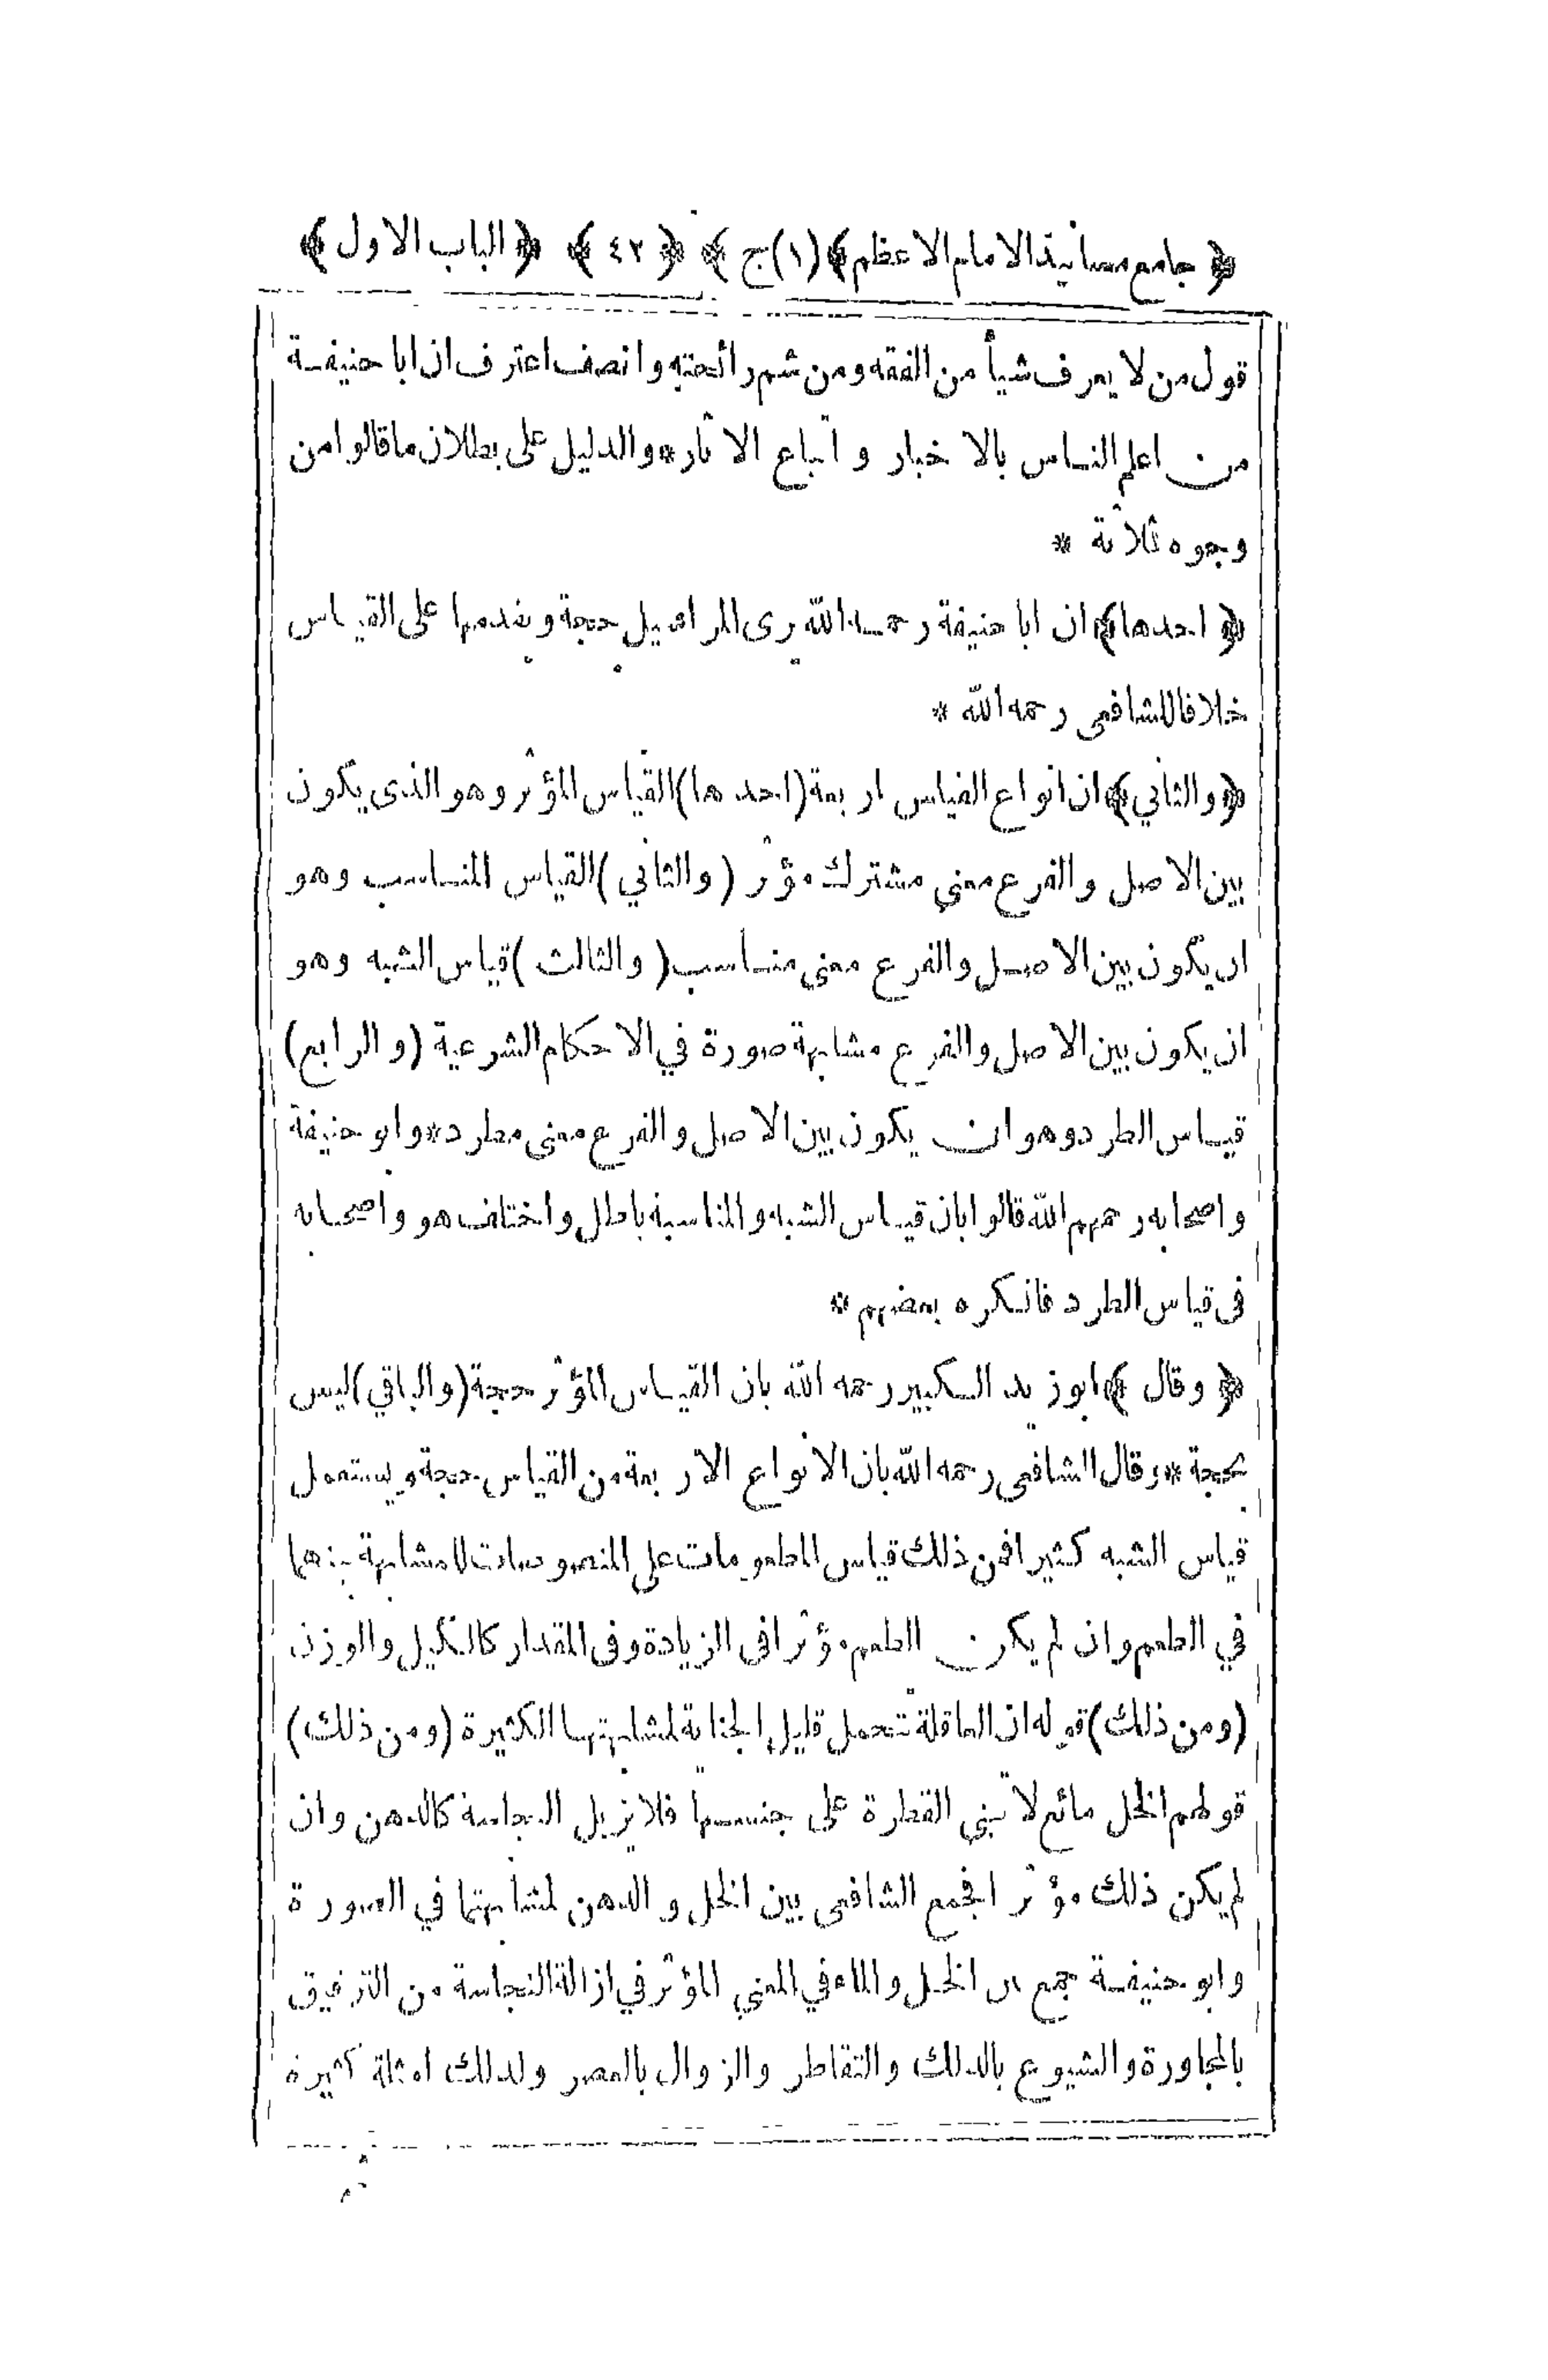 ﴿ جامع مسانيد الامام الاعظم ﴾ (١) ج ﴾ ﴿ ٤٢ ﴾ ﴿ الباب الاول ﴾
قول من لا يعرف شيأ من الفقه ومن شم رائحته وانصف اعترف ان ابا حنيفة
من اعلم الناس بالاخبار واتباع الآثار * والدليل على بطلان ما قالوا من
وجوه ثلاثة *
﴿ احدها ﴾ ان ابا حنيفة رحمه الله يرى المراسيل حجة ويقدمها على القياس
خلافا للشافعى رحمه الله *
﴿ والثاني ﴾ ان انواع القياس اربعة (احدها) القياس المؤثر وهو الذى يكون
بين الاصل والفرع معني مشترك مؤثر (والثاني) القياس المناسب وهو
ان يكون بين الاصل والفرع معني مناسب (والثالث) قياس الشبه وهو
ان يكون بين الاصل والفرع مشابهة صورة في الاحكام الشرعية (والرابع)
قياس الطرد وهو ان يكون بين الاصل والفرع معنى مطرد * وابو حنيفة
واصحابه رحمهم الله قالوا بان قياس الشبه والمناسبة باطل واختلف هو واصحابه
فى قياس الطرد فانكره بعضهم *
﴿ وقال ﴾ ابو زيد الكبير رحمه الله بان القياس المؤثر حجة (والباقي) ليس
بحجة * وقال الشافعى رحمه الله بان الانواع الاربعة من القياس حجة ويستعمل
قياس الشبه كثيرا فمن ذلك قياس المطعومات على المنصوصات لمشابهة بينهما
في الطعم وان لم يكن الطعم مؤثرا فى الزيادة وفى المقدار كالكيل والوزن
(ومن ذلك) قوله ان العاقلة تتحمل قليل الجناية لمشابهتها الكثيرة (ومن ذلك)
قولهم الخل مائع لا تبني القنطرة على جنسها فلا يزيل النجاسة كالدهن وان
لم يكن ذلك مؤثرا فجمع الشافعى بين الخل والدهن لمشابهتهما في الصورة
وابو حنيفة جمع بين الخل والماء في المعني المؤثر في ازالة النجاسة من الترقيق
بالمجاورة والشيوع بالدلك والتقاطر والزوال بالعصر ولذلك امثلة كثيرة